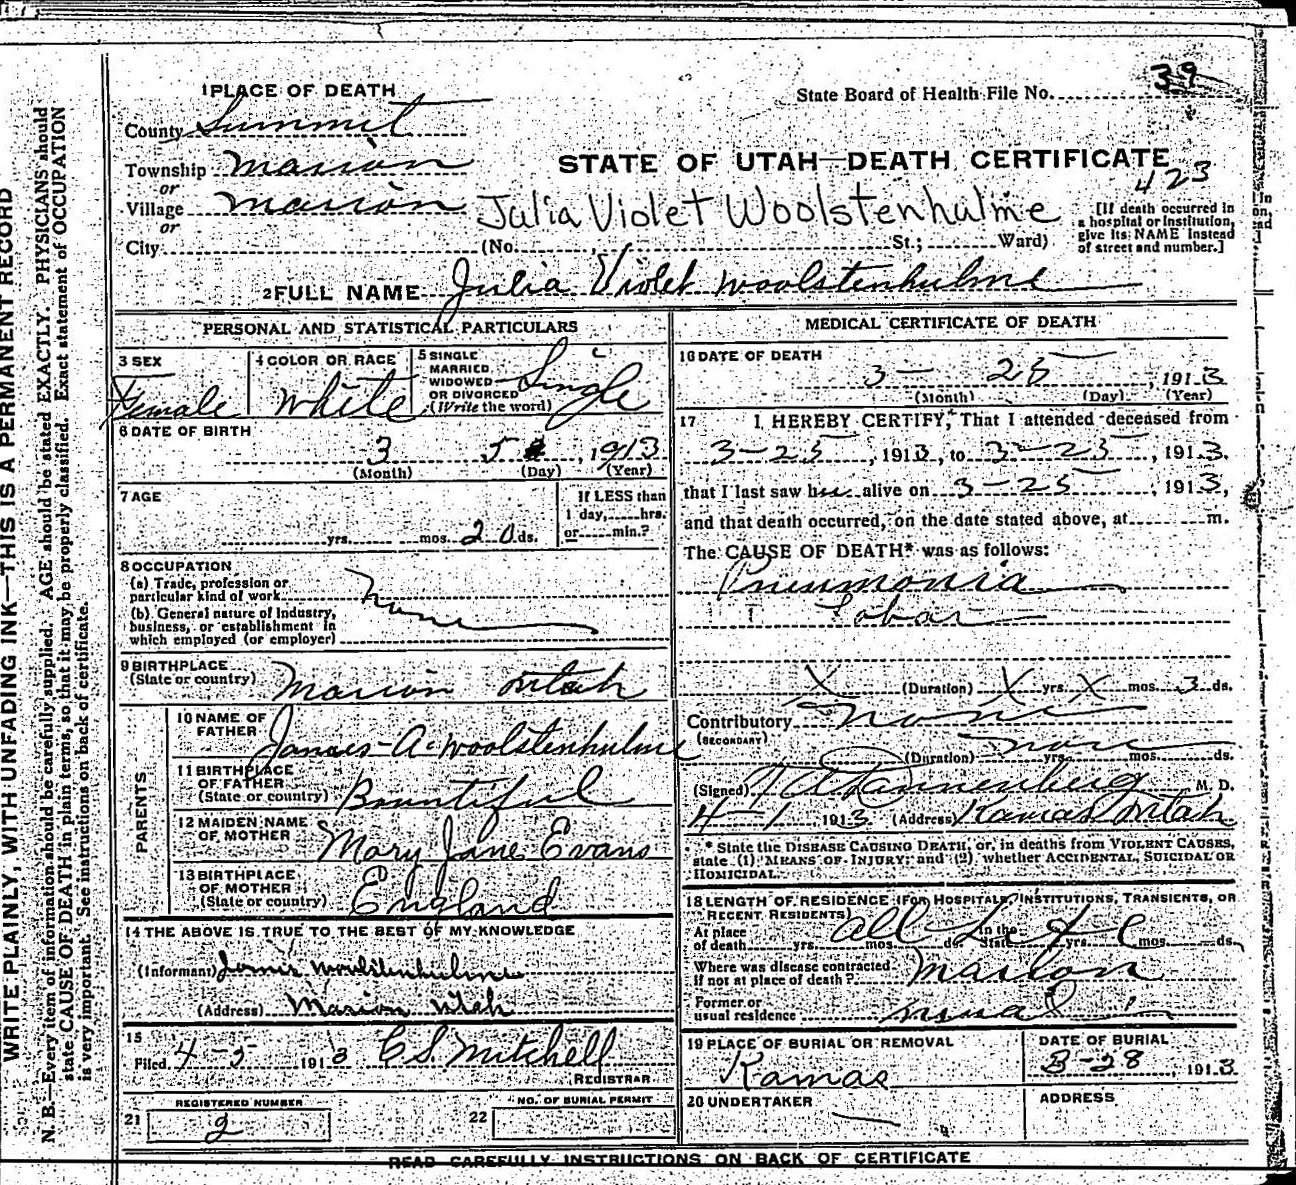 39
State Board of Health File No.
1 PLACE OF DEATH
County Summit
Township Marion
or
Village Marion
or
City
STATE OF UTAH—DEATH CERTIFICATE
423
Julia Violet Woolstenhulme
(No. St.; Ward)
[If death occurred in a hospital or institution, give its NAME instead of street and number.]
2 FULL NAME Julia Violet Woolstenhulme
PERSONAL AND STATISTICAL PARTICULARS
3 SEX
Female
4 COLOR OR RACE
White
5 SINGLE
MARRIED
WIDOWED
OR DIVORCED
(Write the word)
Single
6 DATE OF BIRTH
3 5, 1913
(Month) (Day) (Year)
7 AGE
yrs. mos. 20 ds.
If LESS than
1 day, hrs.
or min.?
8 OCCUPATION
(a) Trade, profession or
particular kind of work
(b) General nature of Industry,
business, or establishment in
which employed (or employer)
None
9 BIRTHPLACE
(State or country) Marion Utah
PARENTS
10 NAME OF
FATHER James A. Woolstenhulme
11 BIRTHPLACE
OF FATHER
(State or country) Bountiful
12 MAIDEN NAME
OF MOTHER Mary Jane Evans
13 BIRTHPLACE
OF MOTHER
(State or country) England
14 THE ABOVE IS TRUE TO THE BEST OF MY KNOWLEDGE
(Informant) Woolstenhulme
(Address) Marion Utah
15
Filed 4-5 1913 C S. Mitchell
REGISTRAR
REGISTERED NUMBER
21 2
NO. OF BURIAL PERMIT
22
MEDICAL CERTIFICATE OF DEATH
16 DATE OF DEATH
3- 25, 1913
(Month) (Day) (Year)
17 I HEREBY CERTIFY, That I attended deceased from
3-25, 1913, to 3-25, 1913,
that I last saw her alive on 3-25, 1913,
and that death occurred, on the date stated above, at m.
The CAUSE OF DEATH* was as follows:
Pneumonia
Lobar
X (Duration) X yrs. X mos. 3 ds.
Contributory None
(SECONDARY)
(Duration) none yrs. mos. ds.
(Signed) M. D.
4-1 1913 (Address) Kamas Utah
* State the DISEASE CAUSING DEATH, or, in deaths from VIOLENT CAUSES,
state (1) MEANS OF INJURY; and (2) whether ACCIDENTAL, SUICIDAL OR
HOMICIDAL.
18 LENGTH OF RESIDENCE (FOR HOSPITALS, INSTITUTIONS, TRANSIENTS, OR
RECENT RESIDENTS)
At place In the
of death yrs. mos. ds. State yrs. mos. ds.
All Life
Where was disease contracted
if not at place of death? Marion
Former or
usual residence usual
19 PLACE OF BURIAL OR REMOVAL
Kamas
DATE OF BURIAL
3-28, 1913
20 UNDERTAKER
ADDRESS
READ CAREFULLY INSTRUCTIONS ON BACK OF CERTIFICATE
WRITE PLAINLY, WITH UNFADING INK—THIS IS A PERMANENT RECORD
N. B.—Every item of information should be carefully supplied. AGE should be stated EXACTLY. PHYSICIANS should
state CAUSE OF DEATH in plain terms, so that it may be properly classified. Exact statement of OCCUPATION
is very important. See instructions on back of certificate.